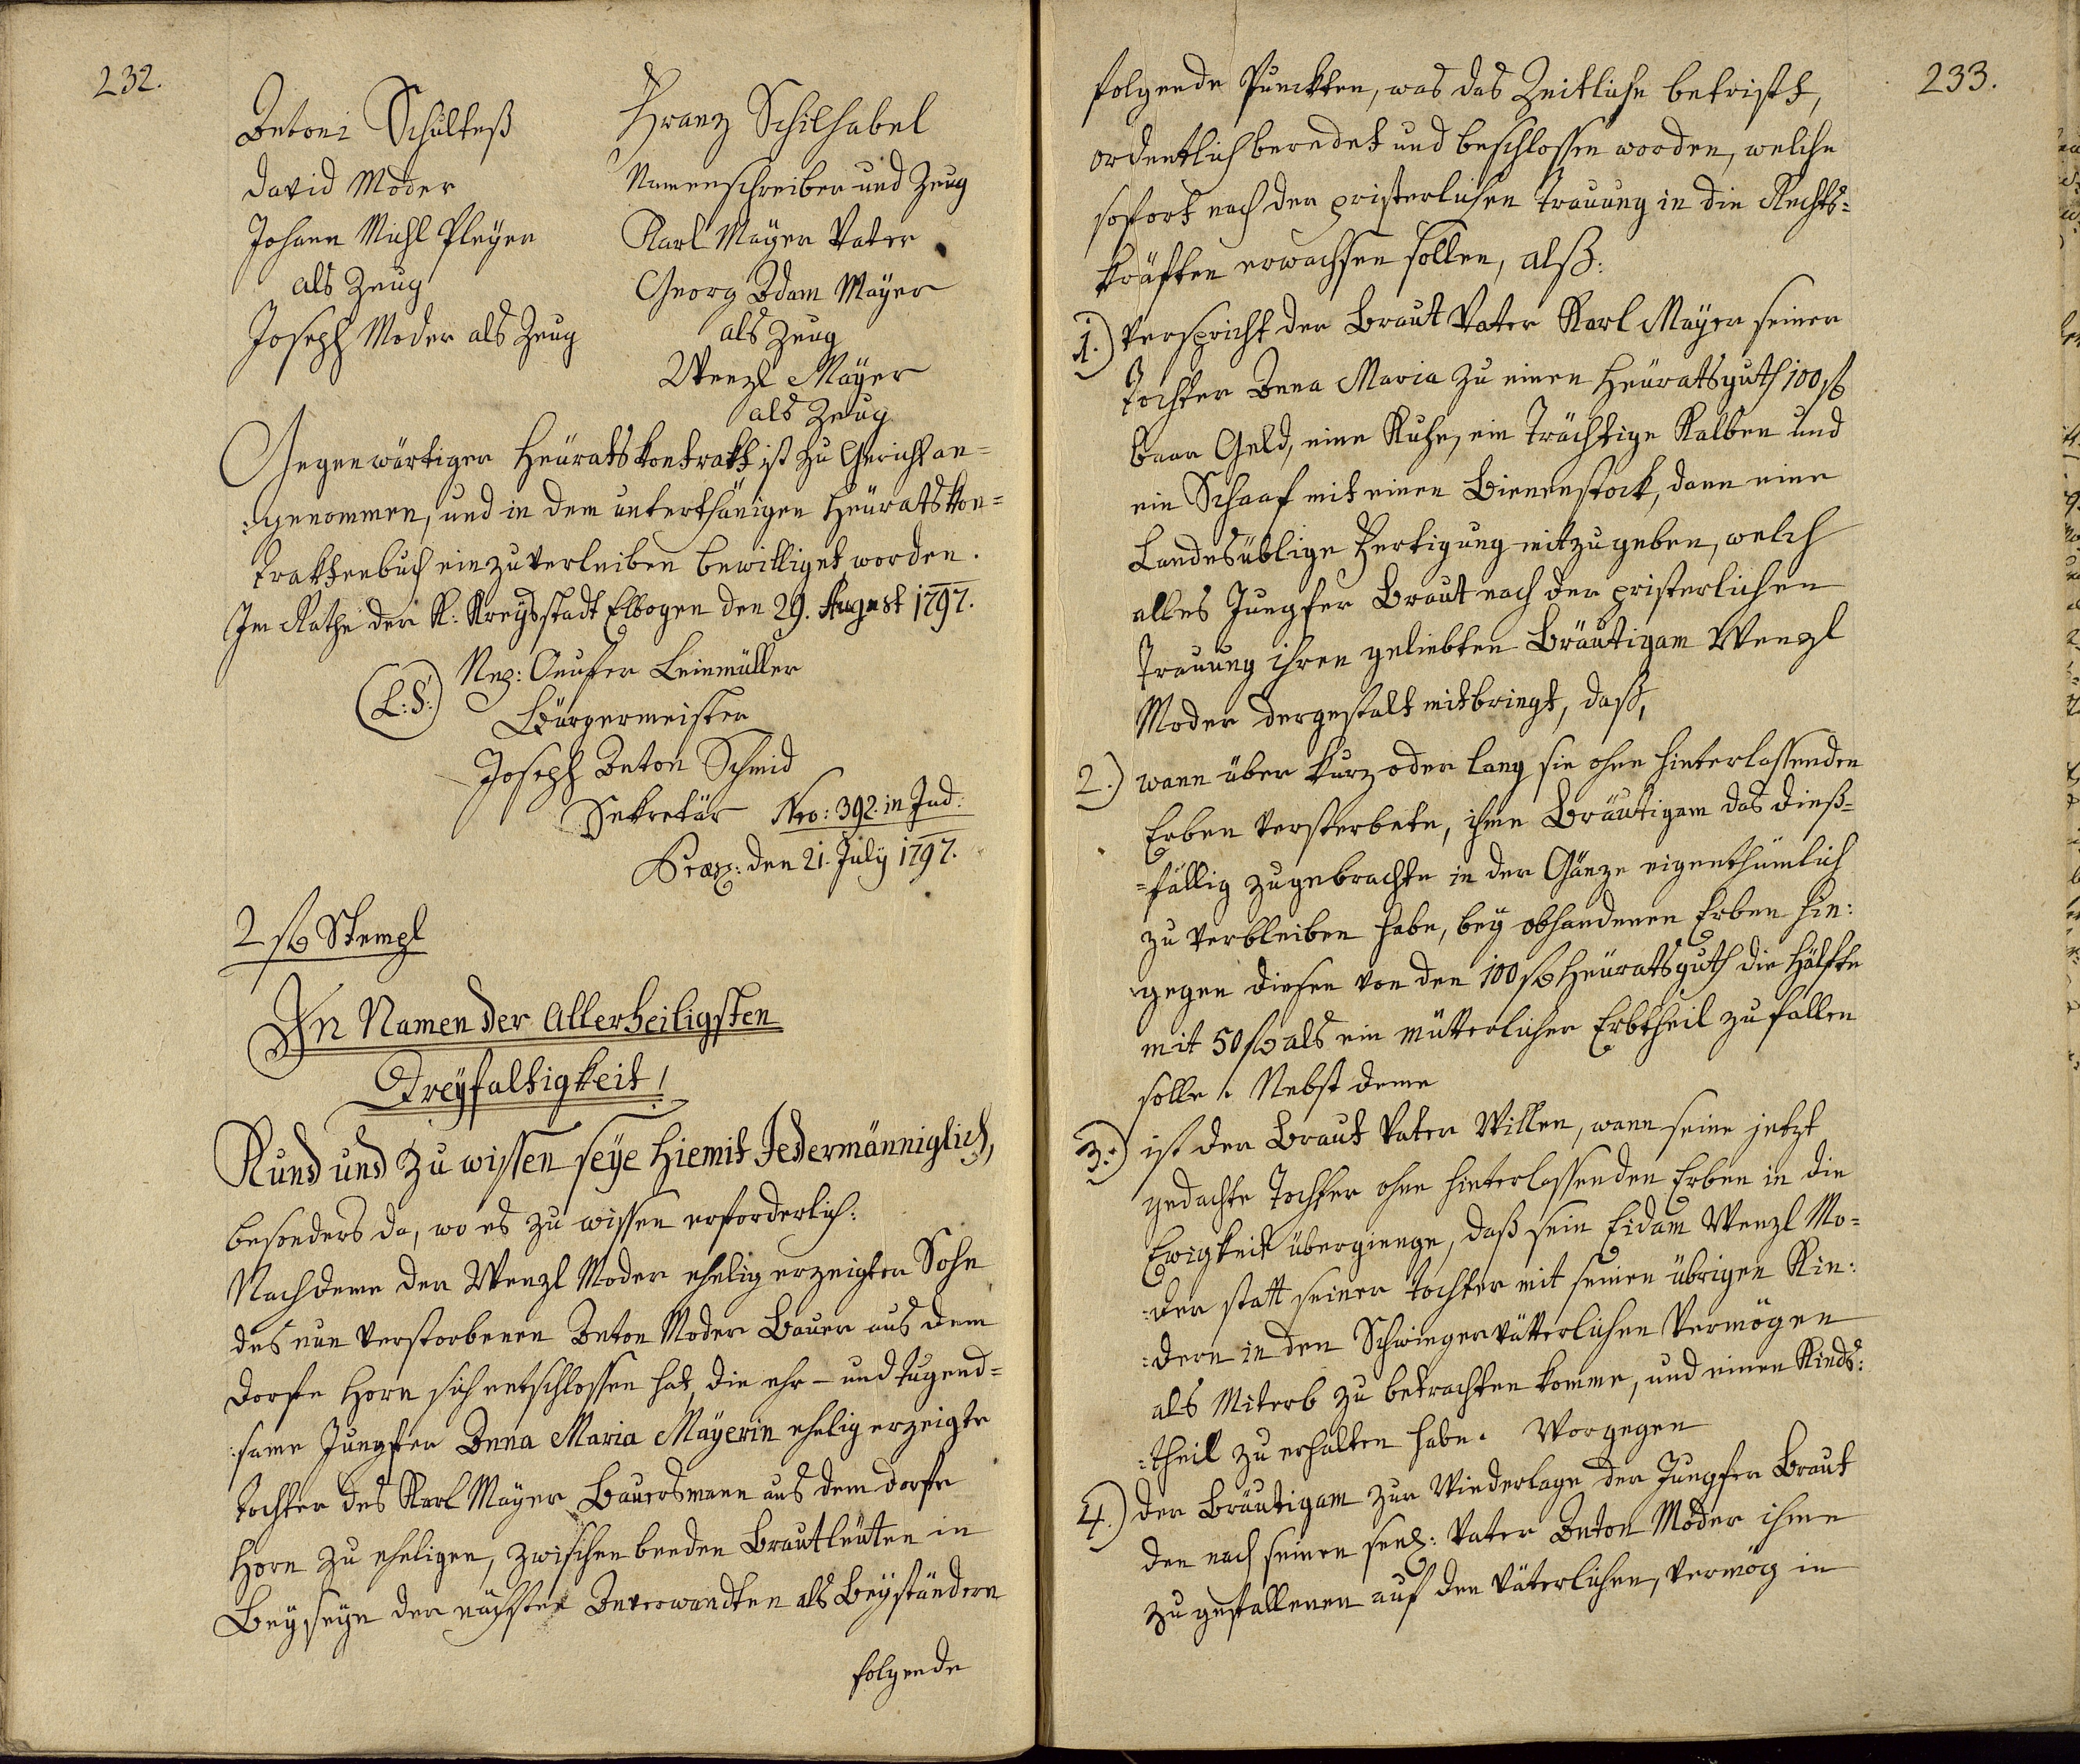 232.
Antoni Schulteß
David Moder
Johann Michl Pleyer
als Zeug
Joseph Moder als Zeug
Franz Schilhabel
Namenschreiber und Zeug
Karl Mayer Vater
Georg Adam Mayer
als Zeug
Wenzl Mayer
als Zeug
Gegenwärtiger Heüratskontrakt ist zu Gericht an=
:genommen, und in dem unterthänigen Heüratskon=
traktenbuch einzuverleiben bewilliget worden.
Im Rathe der K: Kreysstadt Elbogen den 29. August 1797.
(L:S:)
Nep: Leinmüller
Bürgermeister
Joseph Anton Schmid
Sekretär Nro: 392. in Jud:
Præs: den 21. July 1797.
2 f Stempl
In Namen der Allerheiligsten
Dreyfaltigkeit!
Kund und zu wissen seye hiemit Jedermänniglich,
besonders da, wo es zu wissen erforderlich:
Nachdeme der Wenzl Moder ehelig erzeigter Sohn
des nun verstorbenen Anton Moder Bauer aus dem
Dorfe Horn sich entschlossen hat, die ehr- und tugend=
:same Jungfer Anna Maria Mayerin ehelig erzeigte
Tochter des Karl Mayer Bauersmann aus dem Dorfe
Horn zu eheligen, zwischen beeden Brautleüten in
Beyseyn der nächsten Anverwandten als Beyständern
folgende
233.
folgende Punckten, was das Zeitliche betrift,
ordentlich beredet und beschlossen worden, welche
sofort nach der pristerlichen Trauung in die Rechts=
kräften erwachsen sollen, alß:
1.) Verspricht der Braut Vater Karl Mayer seiner
Tochter Anna Maria zu einen Heüratsguth 100 f
baar Geld, eine Kuhe, ein Trächtige Kalben und
ein Schaaf mit einen Bienenstock, dann eine
Landesüblige Fertigung mitzugeben, welch
alles Jungfer Braut nach der pristerlichen
Trauung ihren geliebten Bräutigam Wenzl
Moder dergestalt mitbringt, daß,
2.) wann über kurz oder lang sie ohne hinterlassenden
Erben versterbete, ihme Bräutigam das dieß=
=fällig zugebrachte in der Gänze eigenthümlich
zu verbleiben habe, bey obhandenen Erben hin:
gegen diesen von den 100 f Heüratsguth die Hälfte
mit 50 f als ein mütterlicher Erbtheil zufallen
solle. Nebst deme
3.) ist der Braut Vater Willen, wann seine jetzt
gedachte Tochter ohne hinterlassenden Erben in die
Ewigkeit übergienge, daß sein Eidam Wenzl Mo=
:der statt seiner Tochter mit seinen übrigen Kin:
:dern in den Schwiegervätterlichen Vermögen
als Miterb zu betrachten komme, und einen Kinds:
:theil zu erhalten habe. Worgegen
4.) der Bräutigam zur Wiederlage der Jungfer Braut
den nach seinen seel: Vater Anton Moder ihme
zu gefallenen auf den väterlichen, vermög in